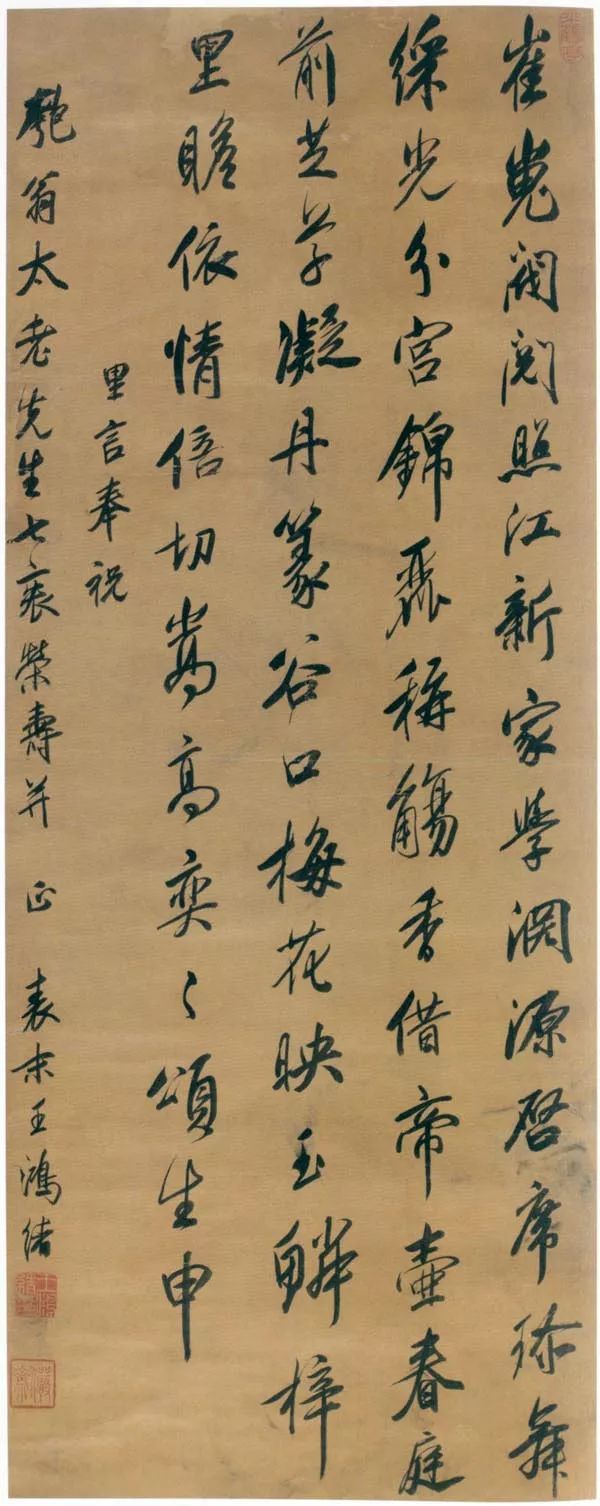 崔嵬閥閱照江新家學淵源啓席珎舞
綵光分宮錦麗稱觴香借帝壺春庭
前芝草凝丹篆谷口梅花映玉鱗梓
里瞻依情倍切嵩高奕〻頌生申
里言奉祝
匏翁太老先生七袠榮壽并 正 表末王鴻緒